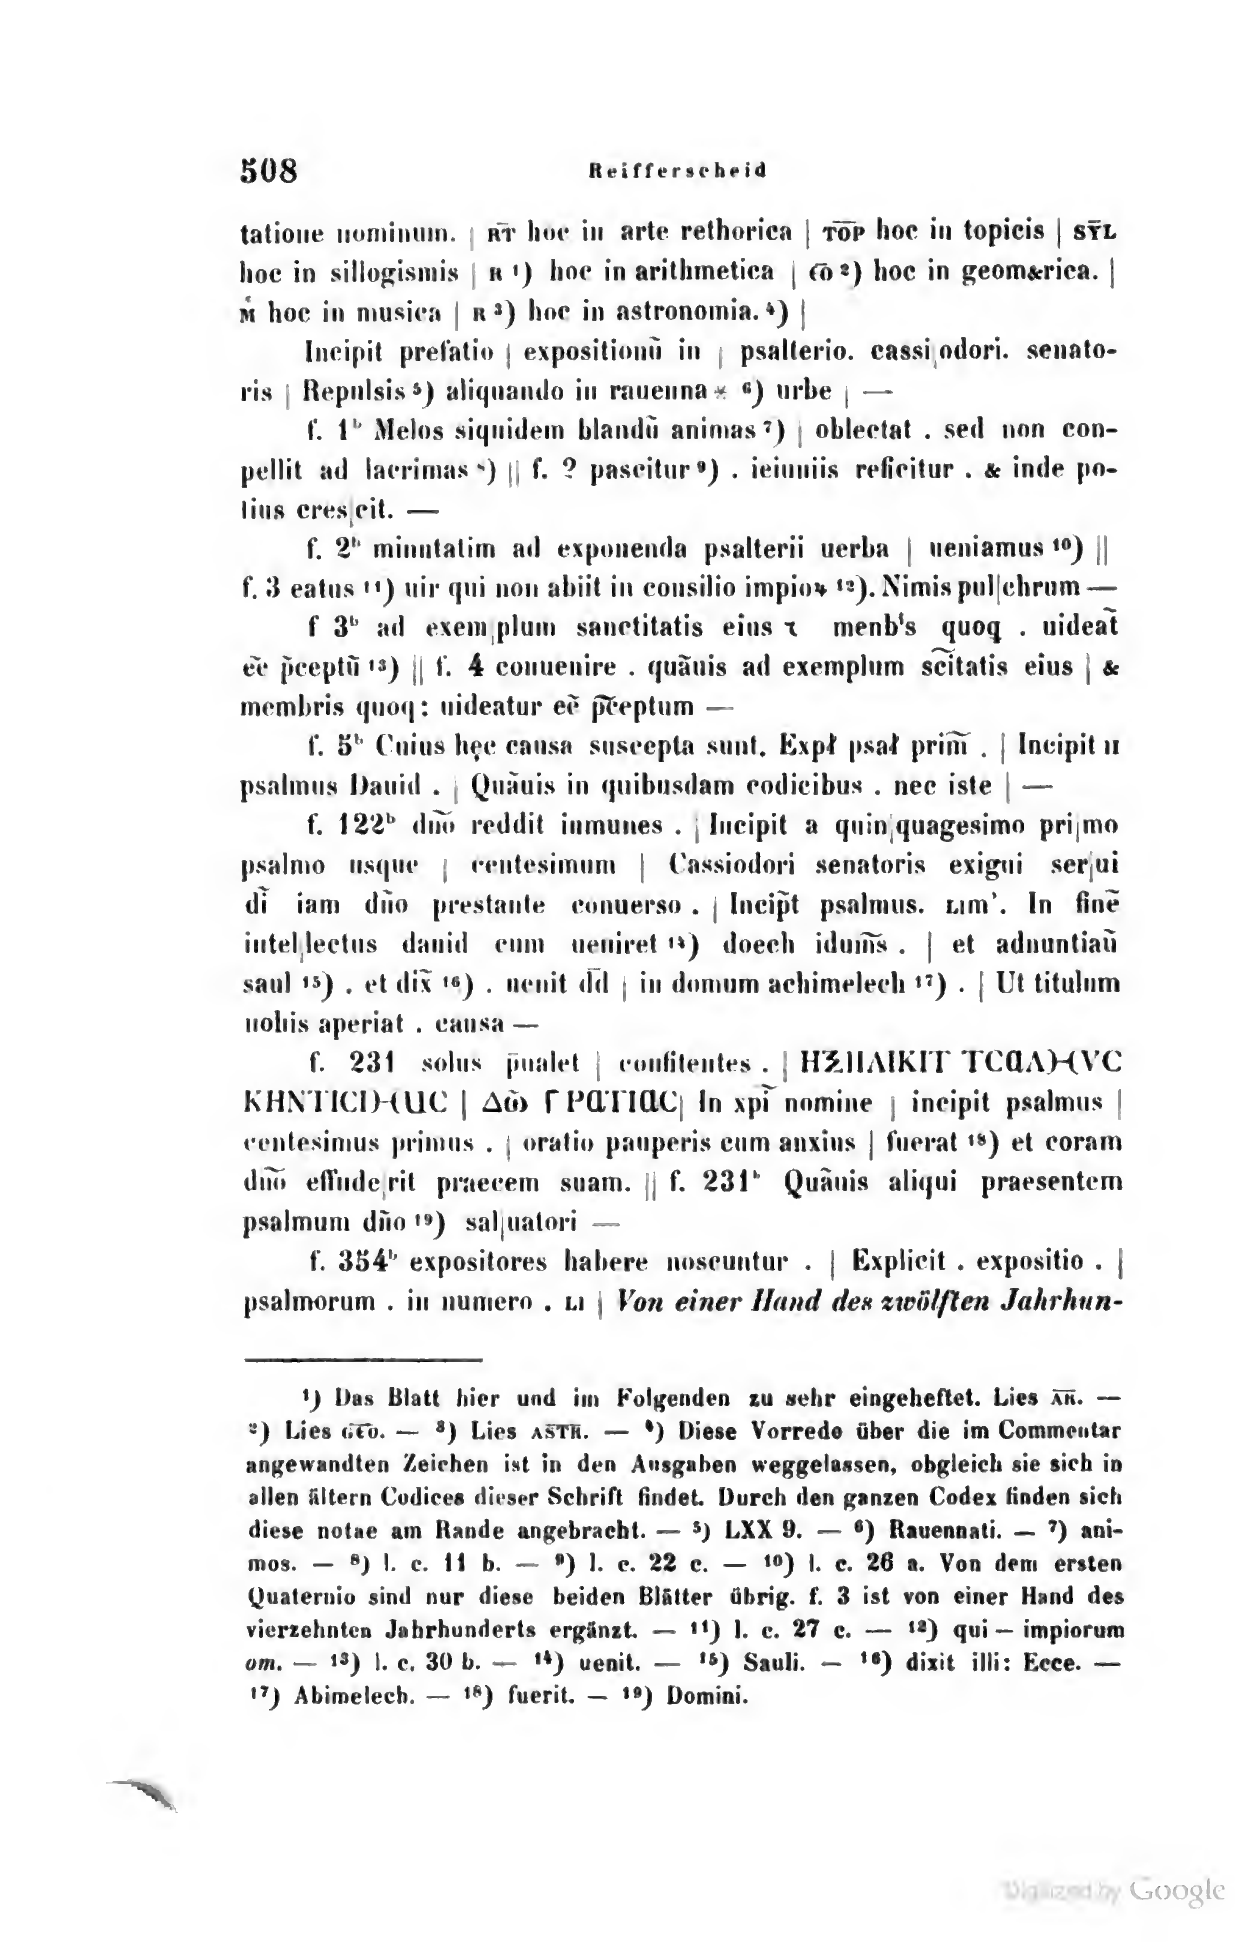 508 Reifferscheid
tatione nominum. | R̅T̅ hoc in arte rethorica | T̅O̅P̅ hoc in topicis | SY̅L
hoc in sillogismis | R ¹) hoc in arithmetica | c̅o̅ ²) hoc in geom&rica. |
M̓ hoc in musica | R ³) hoc in astronomia. ⁴) |
Incipit prefatio | expositionū in | psalterio. cassi|odori. senato-
ris | Repulsis ⁵) aliquando in rauenna * ⁶) urbe | —
f. 1ᵇ Melos siquidem blandū animas ⁷) | oblectat . sed non con-
pellit ad lacrimas ⁸) || f. ? pascitur ⁹) . ieiuniis reficitur . & inde po-
tius cres|cit. —
f. 2ᵇ minutatim ad exponenda psalterii uerba | ueniamus ¹⁰) ||
f. 3 eatus ¹¹) uir qui non abiit in consilio impioꝝ ¹²). Nimis pul|chrum —
f 3ᵇ ad exem|plum sanctitatis eius ꞇ menbˢs quoq . uideat̄
ēē p̄ceptū ¹³) || f. 4 conuenire . quāuis ad exemplum sc̄itatis eius | &
membris quoq: uideatur eē p̄ceptum —
f. 5ᵇ Cuius hęc causa suscepta sunt. Expł psał prim̄ . | Incipit II
psalmus Dauid . | Quāuis in quibusdam codicibus . nec iste | —
f. 122ᵇ dn̄o reddit inmunes . | Incipit a quin|quagesimo pri|mo
psalmo usque | centesimum | Cassiodori senatoris exigui ser|ui
dī iam dn̄o prestante conuerso . | Incip̄t psalmus. LIM’. In finē
intel|lectus dauid cum ueniret ¹⁴) doech idum̄s . | et adnuntiaū
saul ¹⁵) . et dix̄ ¹⁶) . uenit d̄d | in domum achimelech ¹⁷) . | Ut titulum
nobis aperiat . causa —
f. 231 solus p̄ualet | confitentes . |
In xp̄i nomine | incipit psalmus |
centesimus primus . | oratio pauperis cum anxius | fuerat ¹⁸) et coram
dn̄o effude|rit praecem suam. || f. 231ᵇ Quāuis aliqui praesentem
psalmum dn̄o ¹⁹) sal|uatori —
f. 354ᵇ expositores habere noscuntur . | Explicit . expositio . |
psalmorum . in numero . LI | Von einer Hand des zwölften Jahrhun-
¹) Das Blatt hier und im Folgenden zu sehr eingeheftet. Lies A̅R̅. —
²) Lies G̅E̅O̅. — ³) Lies AS̅T̅R̅. — ⁴) Diese Vorrede über die im Commentar
angewandten Zeichen ist in den Ausgaben weggelassen, obgleich sie sich in
allen ältern Codices dieser Schrift findet. Durch den ganzen Codex finden sich
diese notae am Rande angebracht. — ⁵) LXX 9. — ⁶) Rauennati. — ⁷) ani-
mos. — ⁸) l. c. 11 b. — ⁹) l. c. 22 c. — ¹⁰) l. c. 26 a. Von dem ersten
Quaternio sind nur diese beiden Blätter übrig. f. 3 ist von einer Hand des
vierzehnten Jahrhunderts ergänzt. — ¹¹) l. c. 27 c. — ¹²) qui — impiorum
om. — ¹³) l. c. 30 b. — ¹⁴) uenit. — ¹⁵) Sauli. — ¹⁶) dixit illi: Ecce. —
¹⁷) Abimelech. — ¹⁸) fuerit. — ¹⁹) Domini.
Digitized by Google